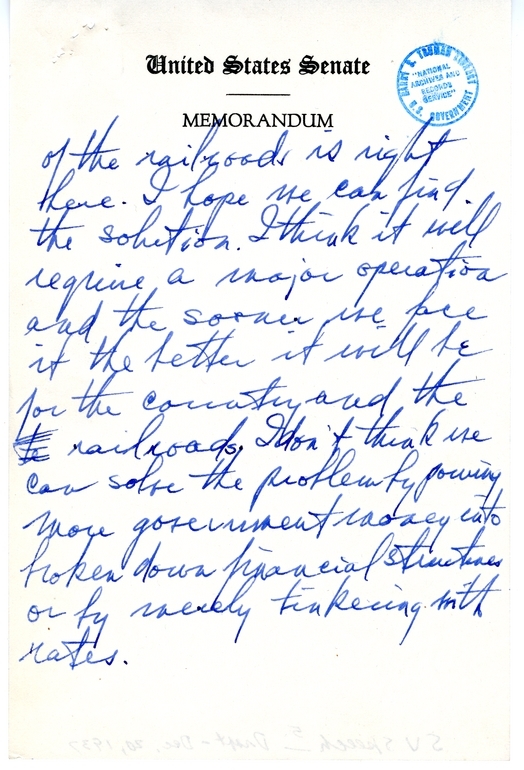 United States Senate
MEMORANDUM
HARRY S. TRUMAN LIBRARY
"NATIONAL
ARCHIVES AND
RECORDS
SERVICE"
U.S. GOVERNMENT
of the railroads is right
here. I hope we can find
the solution. I think it will
require a major operation
and the sooner we face
it the better it will be
for the country and the
railroads. I don't think we
can solve the problem by pouring
more government money into
broken down financial structures
or by merely tinkering with
rates.
S V Speech
Draft - Dec. 20, 1937